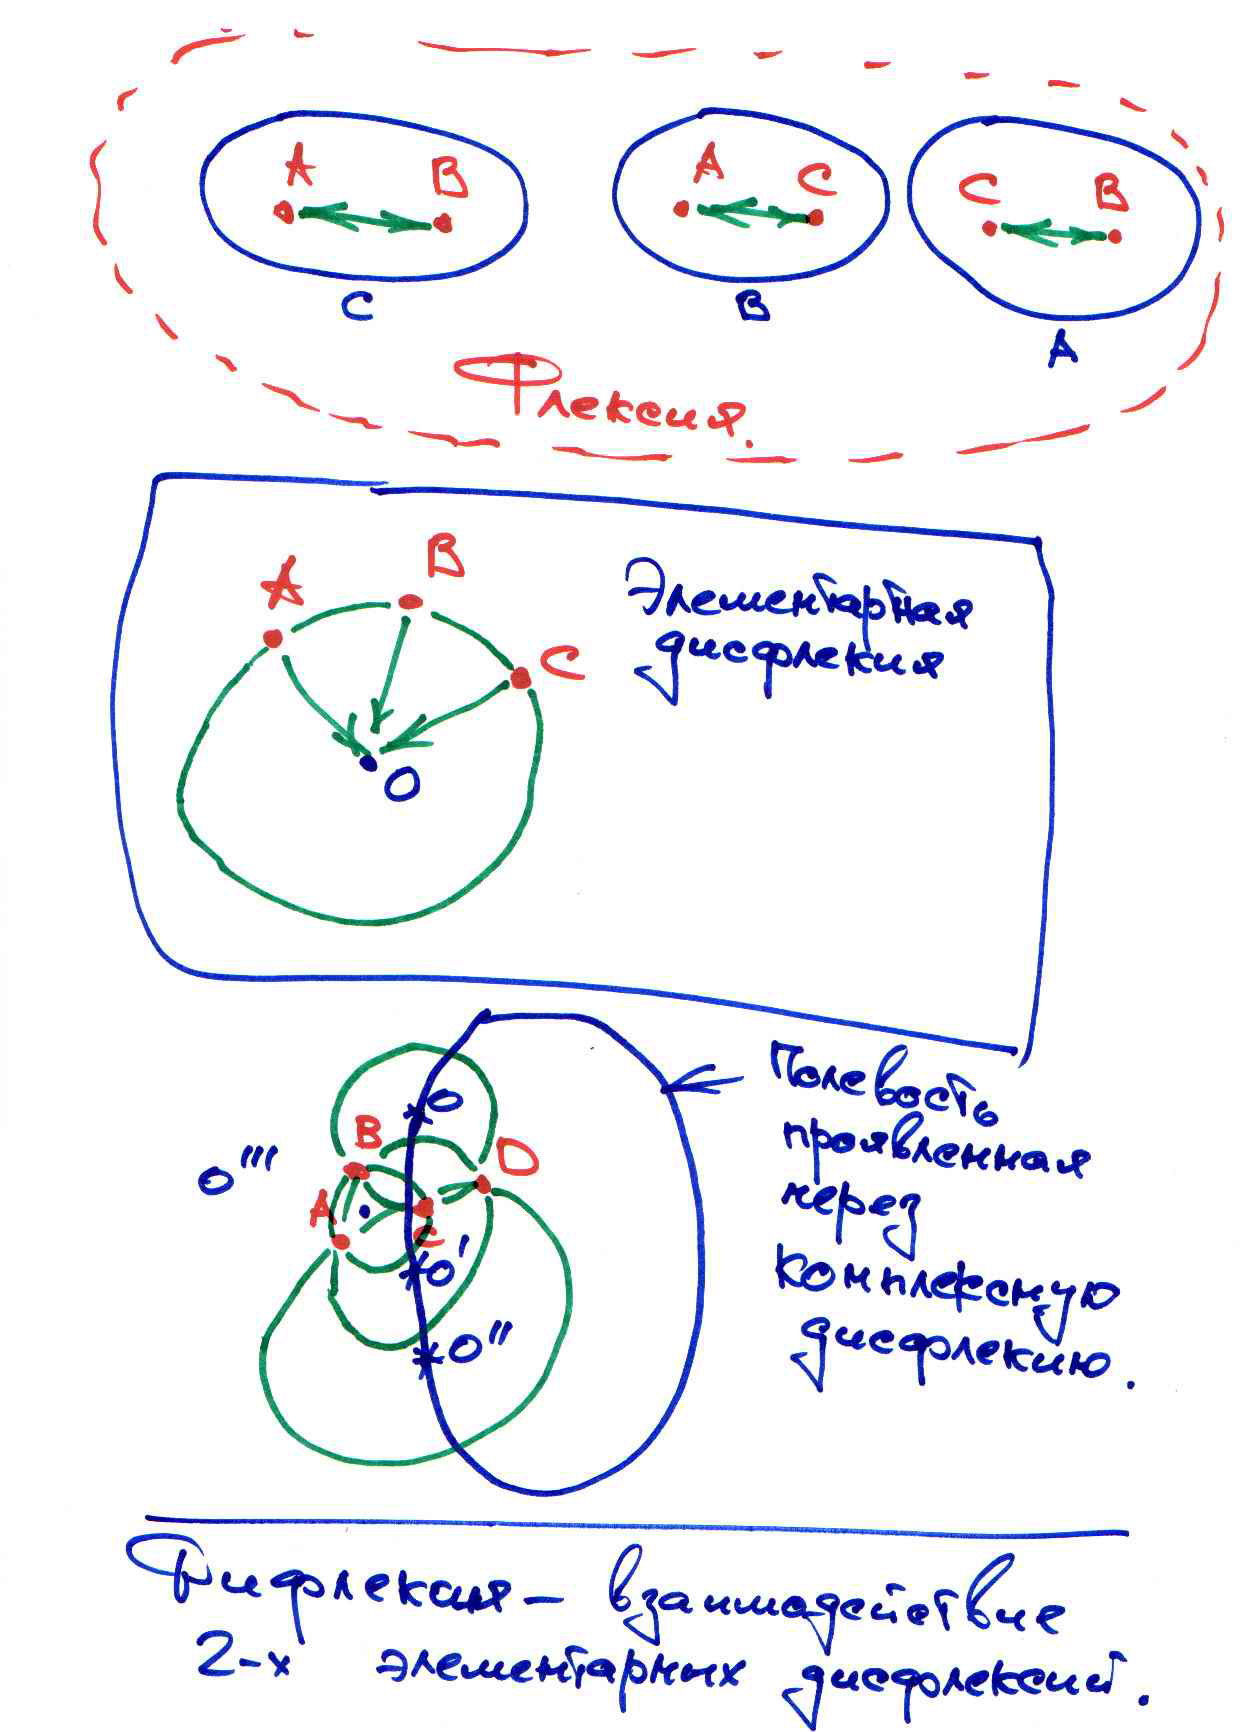 А В
А С
С В
С
В
А
Флексия.
А
В
С
О
Элементарная
дисфлекия
О
В
D
О'''
А
С
О'
О''
Полевость
проявленная
через
комплексную
дисфлекию.
Дифлекия – взаимодействие
2-х элементарных дисфлексий.